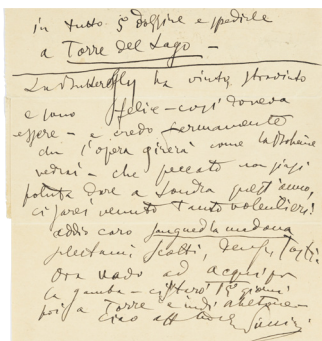 in tutto 5 dozzine e spedirle
a Torre del Lago —
La Butterfly ha vinto, stravinto
e sono felice — così doveva
essere — e credo fermamente
che l'opera girerà come la Bohème
vedrai — che peccato non s'sia
potuta dare a Londra quest'anno,
ci sarei venuto tanto volentieri
addio caro
salutami Scotti, Denza, Tosti
Ora vado ad Acqui per
la gamba — ci starò 15 giorni
poi a Torre e indi Abetone —
ciao aff